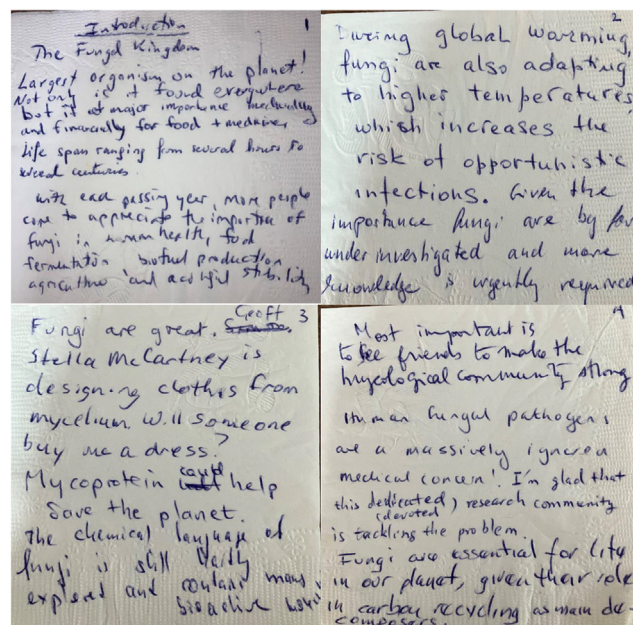 Introduction
1
The Fungal Kingdom
Largest organism on the planet!
Not only is it found everywhere
but it of major importance medicinally
and financially for food + medicines
Life span ranging from several hours to
several centuries.
with each passing year, more people
come to appreciate the importance of
fungi in human health, food
fermentation biofuel production
agriculture and stability
2
During global warming,
fungi are also adapting
to higher temperatures,
which increases the
risk of opportunistic
infections. Given the
importance fungi are by far
under investigated and more
knowledge is urgently required
Geoff 3
Fungi are great.
Stella McCartney is
designing clothes from
mycelium. Will someone
buy me a dress?
Mycoprotein could help
Save the planet.
The chemical language of
fungi is still
explored and contains many
bioactive
4
Most important is
to see friends to make the
mycological community strong
Human fungal pathogens
are a massively ignored
medical concern! I'm glad that
this dedicated, research community
(devoted)
is tackling the problem.
Fungi are essential for life
in our planet, given their role
in carbon recycling as main de-
composers.